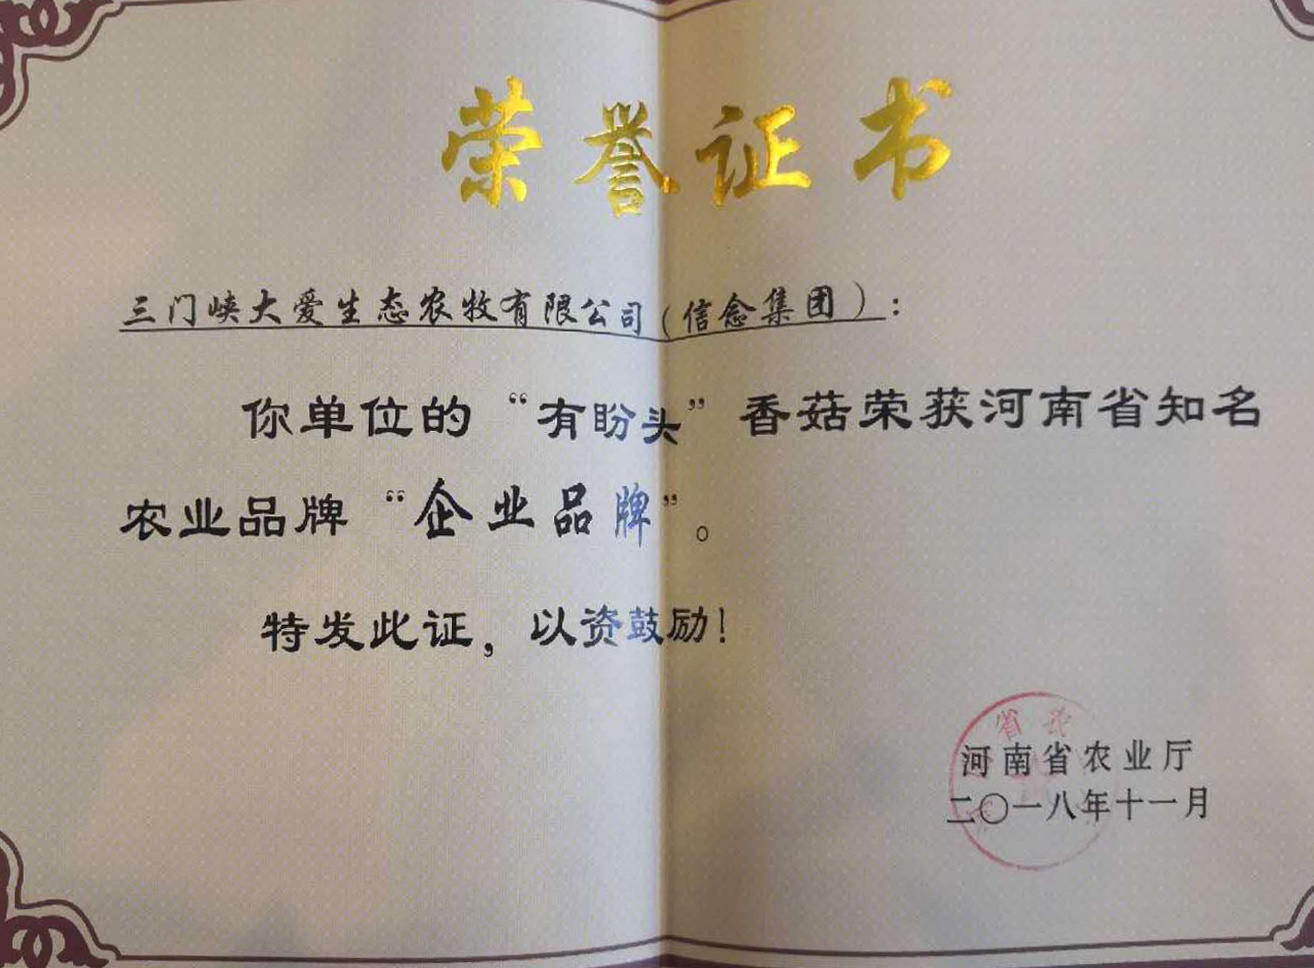 荣誉证书
三门峡大爱生态农牧有限公司（信念集团）：
你单位的“有盼头”香菇荣获河南省知名
农业品牌“企业品牌”。
特发此证，以资鼓励！
省农
河南省农业厅
二〇一八年十一月